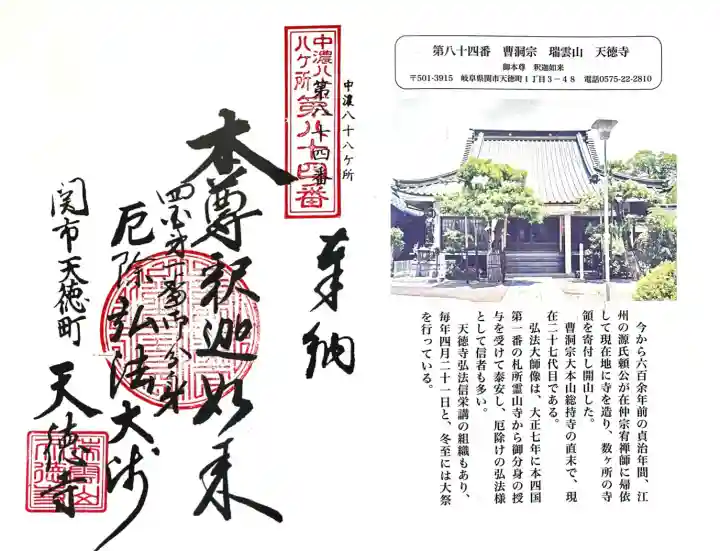 第八十四番　曹洞宗　瑞雲山　天徳寺
御本尊　釈迦如来
〒501-3915　岐阜県関市天徳町１丁目３－４８　電話0575-22-2810
今から六百余年前の貞治年間、江
州の源氏頼公が在仲宗宥禅師に帰依
して現在地に寺を造り、数ヶ所の寺
領を寄付し開山した。
曹洞宗大本山総持寺の直末で、現
在二十七代目である。
弘法大師像は、大正七年に本四国
第一番の札所霊山寺から御分身の授
与を受けて奉安し、厄除けの弘法様
として信者も多い。
天徳寺弘法信栄講の組織もあり、
毎年四月二十一日と、冬至には大祭
を行っている。
中濃八十八ケ所
第八十四番
中濃八
八ケ所
第八十四番
奉納
本尊釈迦如来
厄除弘法大師
関市天徳町
天徳寺